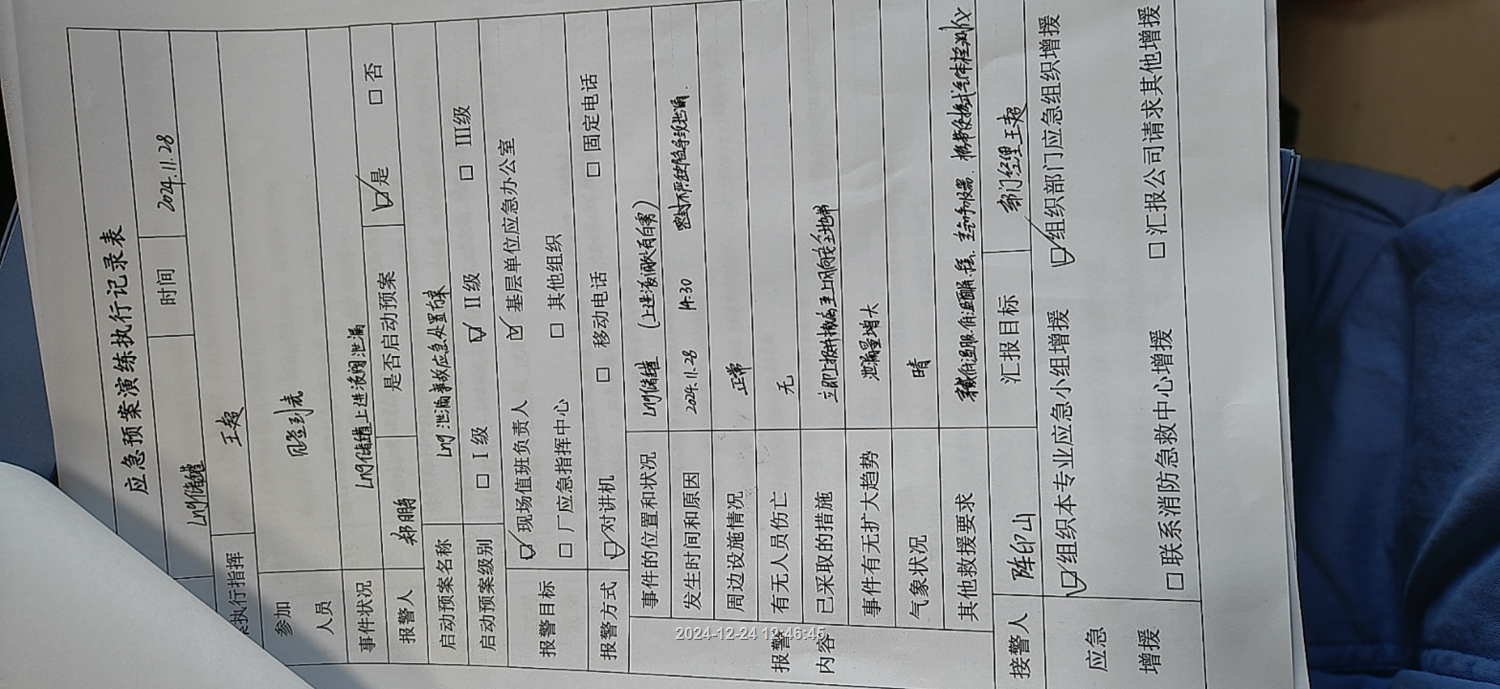 应急预案演练执行记录表
Lng储罐 时间 2024.11.28
案执行指挥 王超
参加
人员
事件状况 Lng储罐上进液阀泄漏
报警人 郑鹏 是否启动预案 ☑是 □否
启动预案名称 Lng泄漏事故应急处置方案
启动预案级别 □Ⅰ级 ☑Ⅱ级 □Ⅲ级
报警目标 ☑现场值班负责人 ☑基层单位应急办公室
□厂应急指挥中心 □其他组织
报警方式 ☑对讲机 □移动电话 □固定电话
报警
内容
事件的位置和状况 Lng储罐 (上进液阀处有白雾)
发生时间和原因 2024.11.28 14:30 密封不严缺陷导致泄漏
周边设施情况 正常
有无人员伤亡 无
已采取的措施 立即上报并撤离至上风向安全地带
事件有无扩大趋势 泄漏量增大
气象状况 晴
其他救援要求 携带便携式气体检测仪
接警人 阵印山 汇报目标 部门经理王超
应急
增援
☑组织本专业应急小组增援 ☑组织部门应急组织增援
□联系消防急救中心增援 □汇报公司请求其他增援
2024-12-24 12:46:45